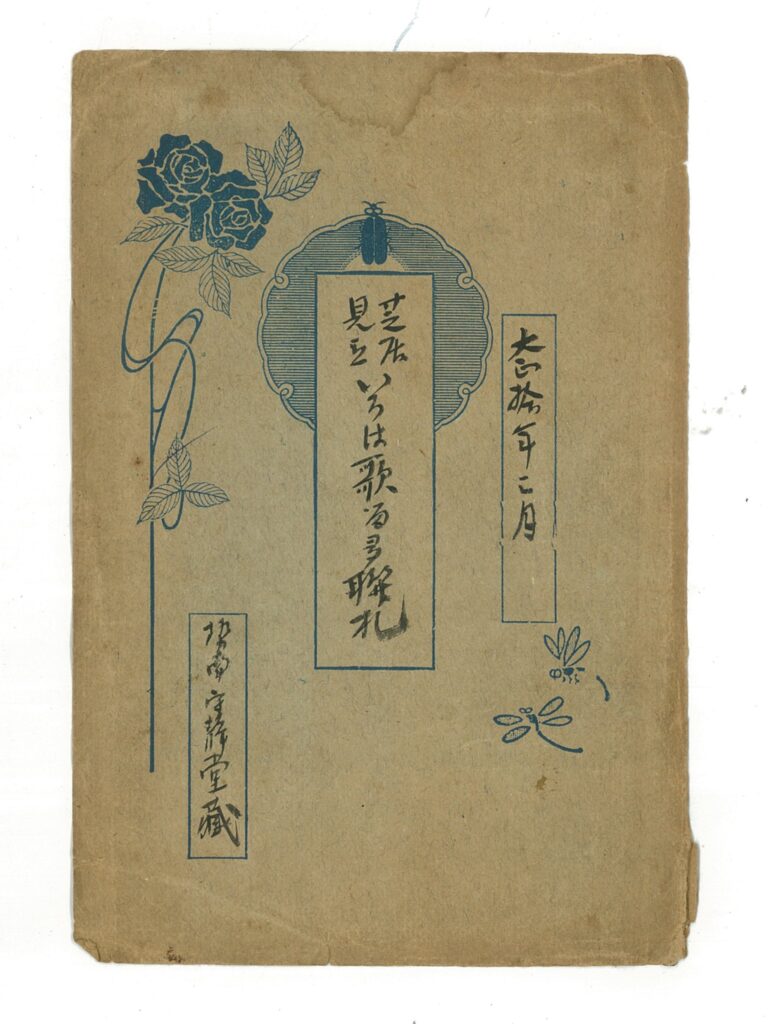 大正拾年二月
芝居
見立
いろは歌留多聯札
南守静堂藏